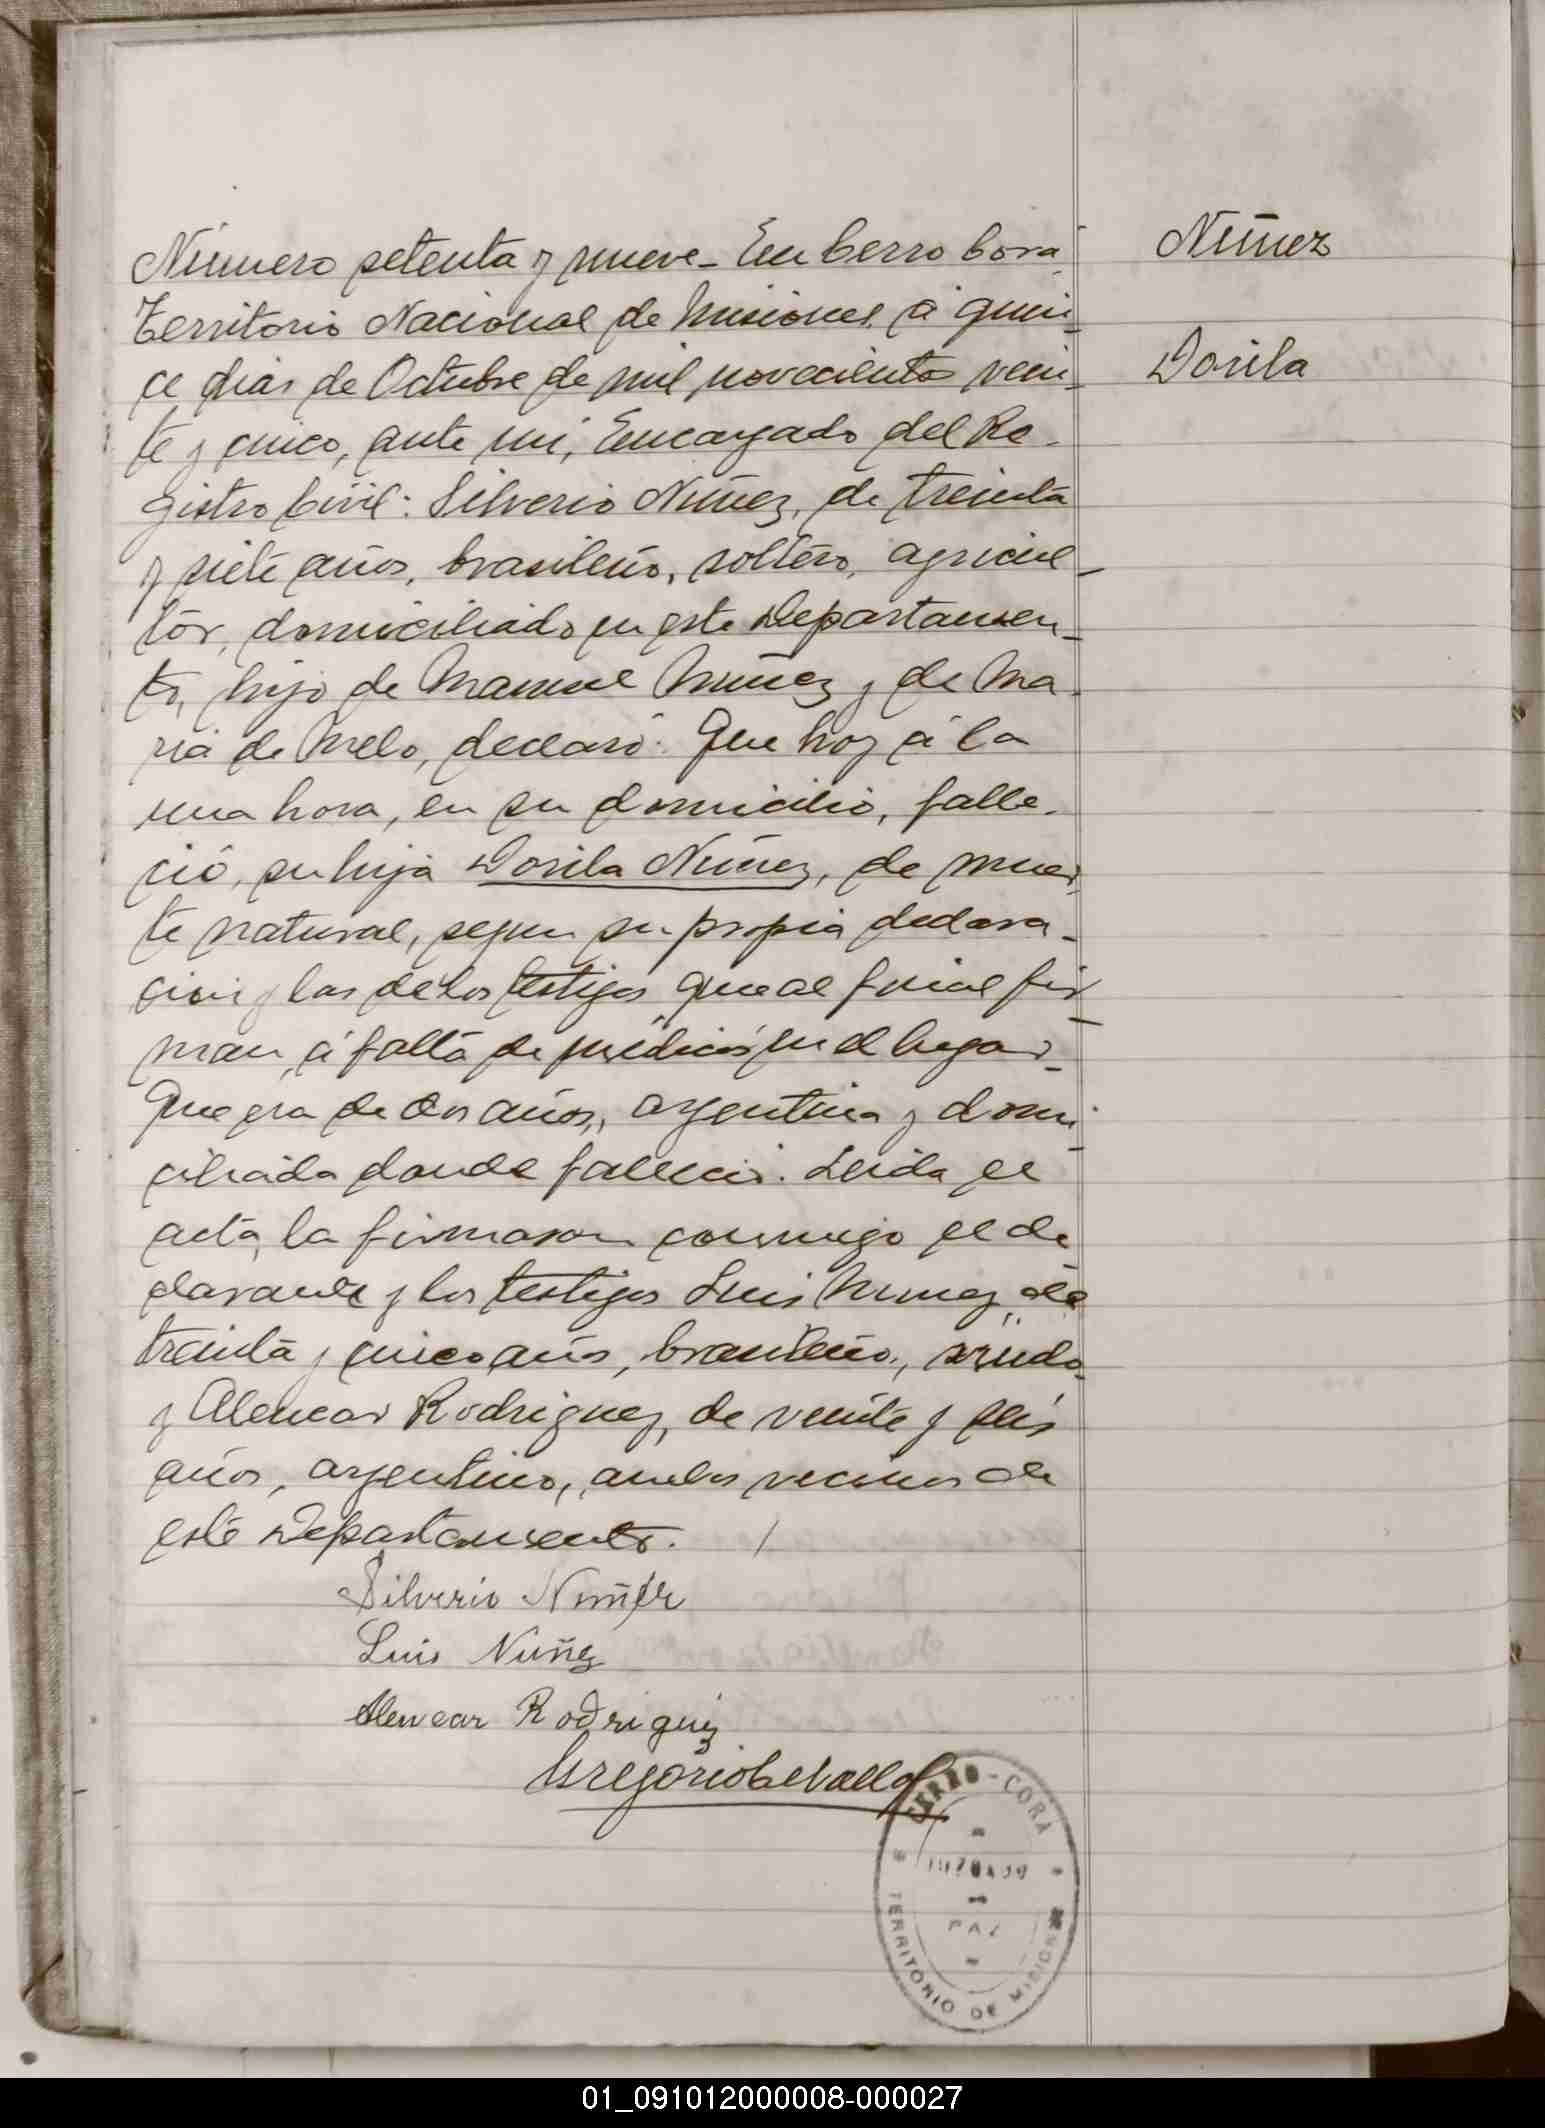 Número setenta y nueve - En Cerro Corá
Territorio Nacional de Misiones, á quin-
ce dias de Octubre de mil novecientos vein-
te y cinco, ante mi, Encargado del Re-
gistro Civil: Silverio Núñez, de treinta
y siete años, brasileño, soltero, agricul-
tor, domiciliado en este Departamen-
to, hijo de Manuel Núñez y de Ma-
ria de Melo, declaró: Que hoy á la
una hora, en su domicilio, falle-
ció, su hija Dorila Núñez, de muer-
te natural, segun su propia declara-
cion y las de los testigos que al final fir-
man, á falta de médicos en el lugar-
Que era de dos años, argentina y domi-
ciliada donde falleció. Leida el
acta, la firmaron conmigo el de-
clarante y los testigos Luis Núñez, de
treinta y cinco años, brasileño, viudo
y Alencar Rodriguez, de veinte y seis
años, argentino, ambos vecinos de
este Departamento.
Silverio Nuñez
Luis Nuñez
Alencar Rodriguez
Gregorio
Núñez
Dorila
CERRO-CORÁ
PAZ
TERRITORIO DE MISIONES
01_091012000008-000027